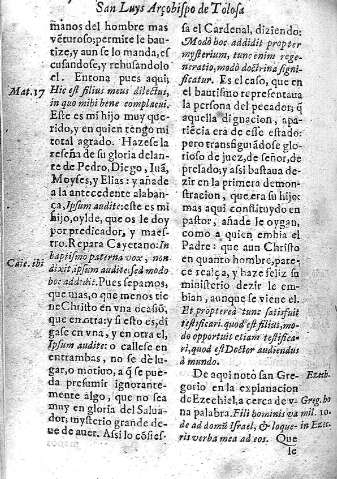 San Luys Arçobispo de Tolosa
manos del hombre mas
vẽturoso; permite le bau-
tize, y aun se lo manda, es
cusandose, y rehusandolo
el. Entona pues aqui;
Mat. 17
Hic est filius meus dilectus,
in quo mihi bene complacui.
Este es mi hijo muy que-
rido, y en quien tengo mi
total agrado. Hazese la
reseña de su gloria delan-
te de Pedro, Diego, Iuã,
Moyses, y Elias: y añade
a la antecedente alaban-
ça, Ipsum audite: este es mi
hijo, oylde, que os le doy
por predicador, y maes-
tro. Repara Cayetano: In
Caie. ibi
baptismo paterna vox, non
dixit, ipsum audite: sed modo
hoc addidit. Pues sepamos,
que mas, o que menos tie
ne Christo en vna ocasiõ,
que en otra: y si esto es, di
gase en vna, y en otra el,
Ipsum audite: o callese en
entrambas, no se dè lu-
gar, o motiuo, a q̃ se pue-
da presumir ignorante-
mente algo, que no sea
muy en gloria del Salua-
dor; mysterio grande de-
ue de auer. Assi lo cõfies-
sa el Cardenal, diziendo:
Modò hoc addidit propter
mysterium, tunc enim rege-
neratio, modò doctrina signi-
ficatur. Es el caso, que en
el bautismo representaua
la persona del pecador; q̃
aquella dignacion, apa-
riẽcia era de esse estado:
pero transfigurãdose glo-
rioso de juez, de señor, de
prelado; y assi bastaua de-
zir en la primera demon-
stracion, que era su hijo:
mas aqui constituydo en
pastor, añade le oygan,
como a quien embia el
Padre: que aun Christo
en quanto hombre, pare-
ce realça, y haze feliz su
ministerio dezir le em-
bian, aunque se viene el.
Et propterea tunc satisfuit
testificari, quod est filius, mo-
do oportuit etiam testifica-
ri, quod est Doctor audiendus
à mundo.
De aqui notò san Gre-
gorio en la explanacion
Ezech.
de Ezechiel, a cerca de v-
na palabra. Fili hominis va-
de ad domũ Israel, & loque-
ris verba mea ad eos. Que
Greg. ho
mil. 10.
in Ezec.
le